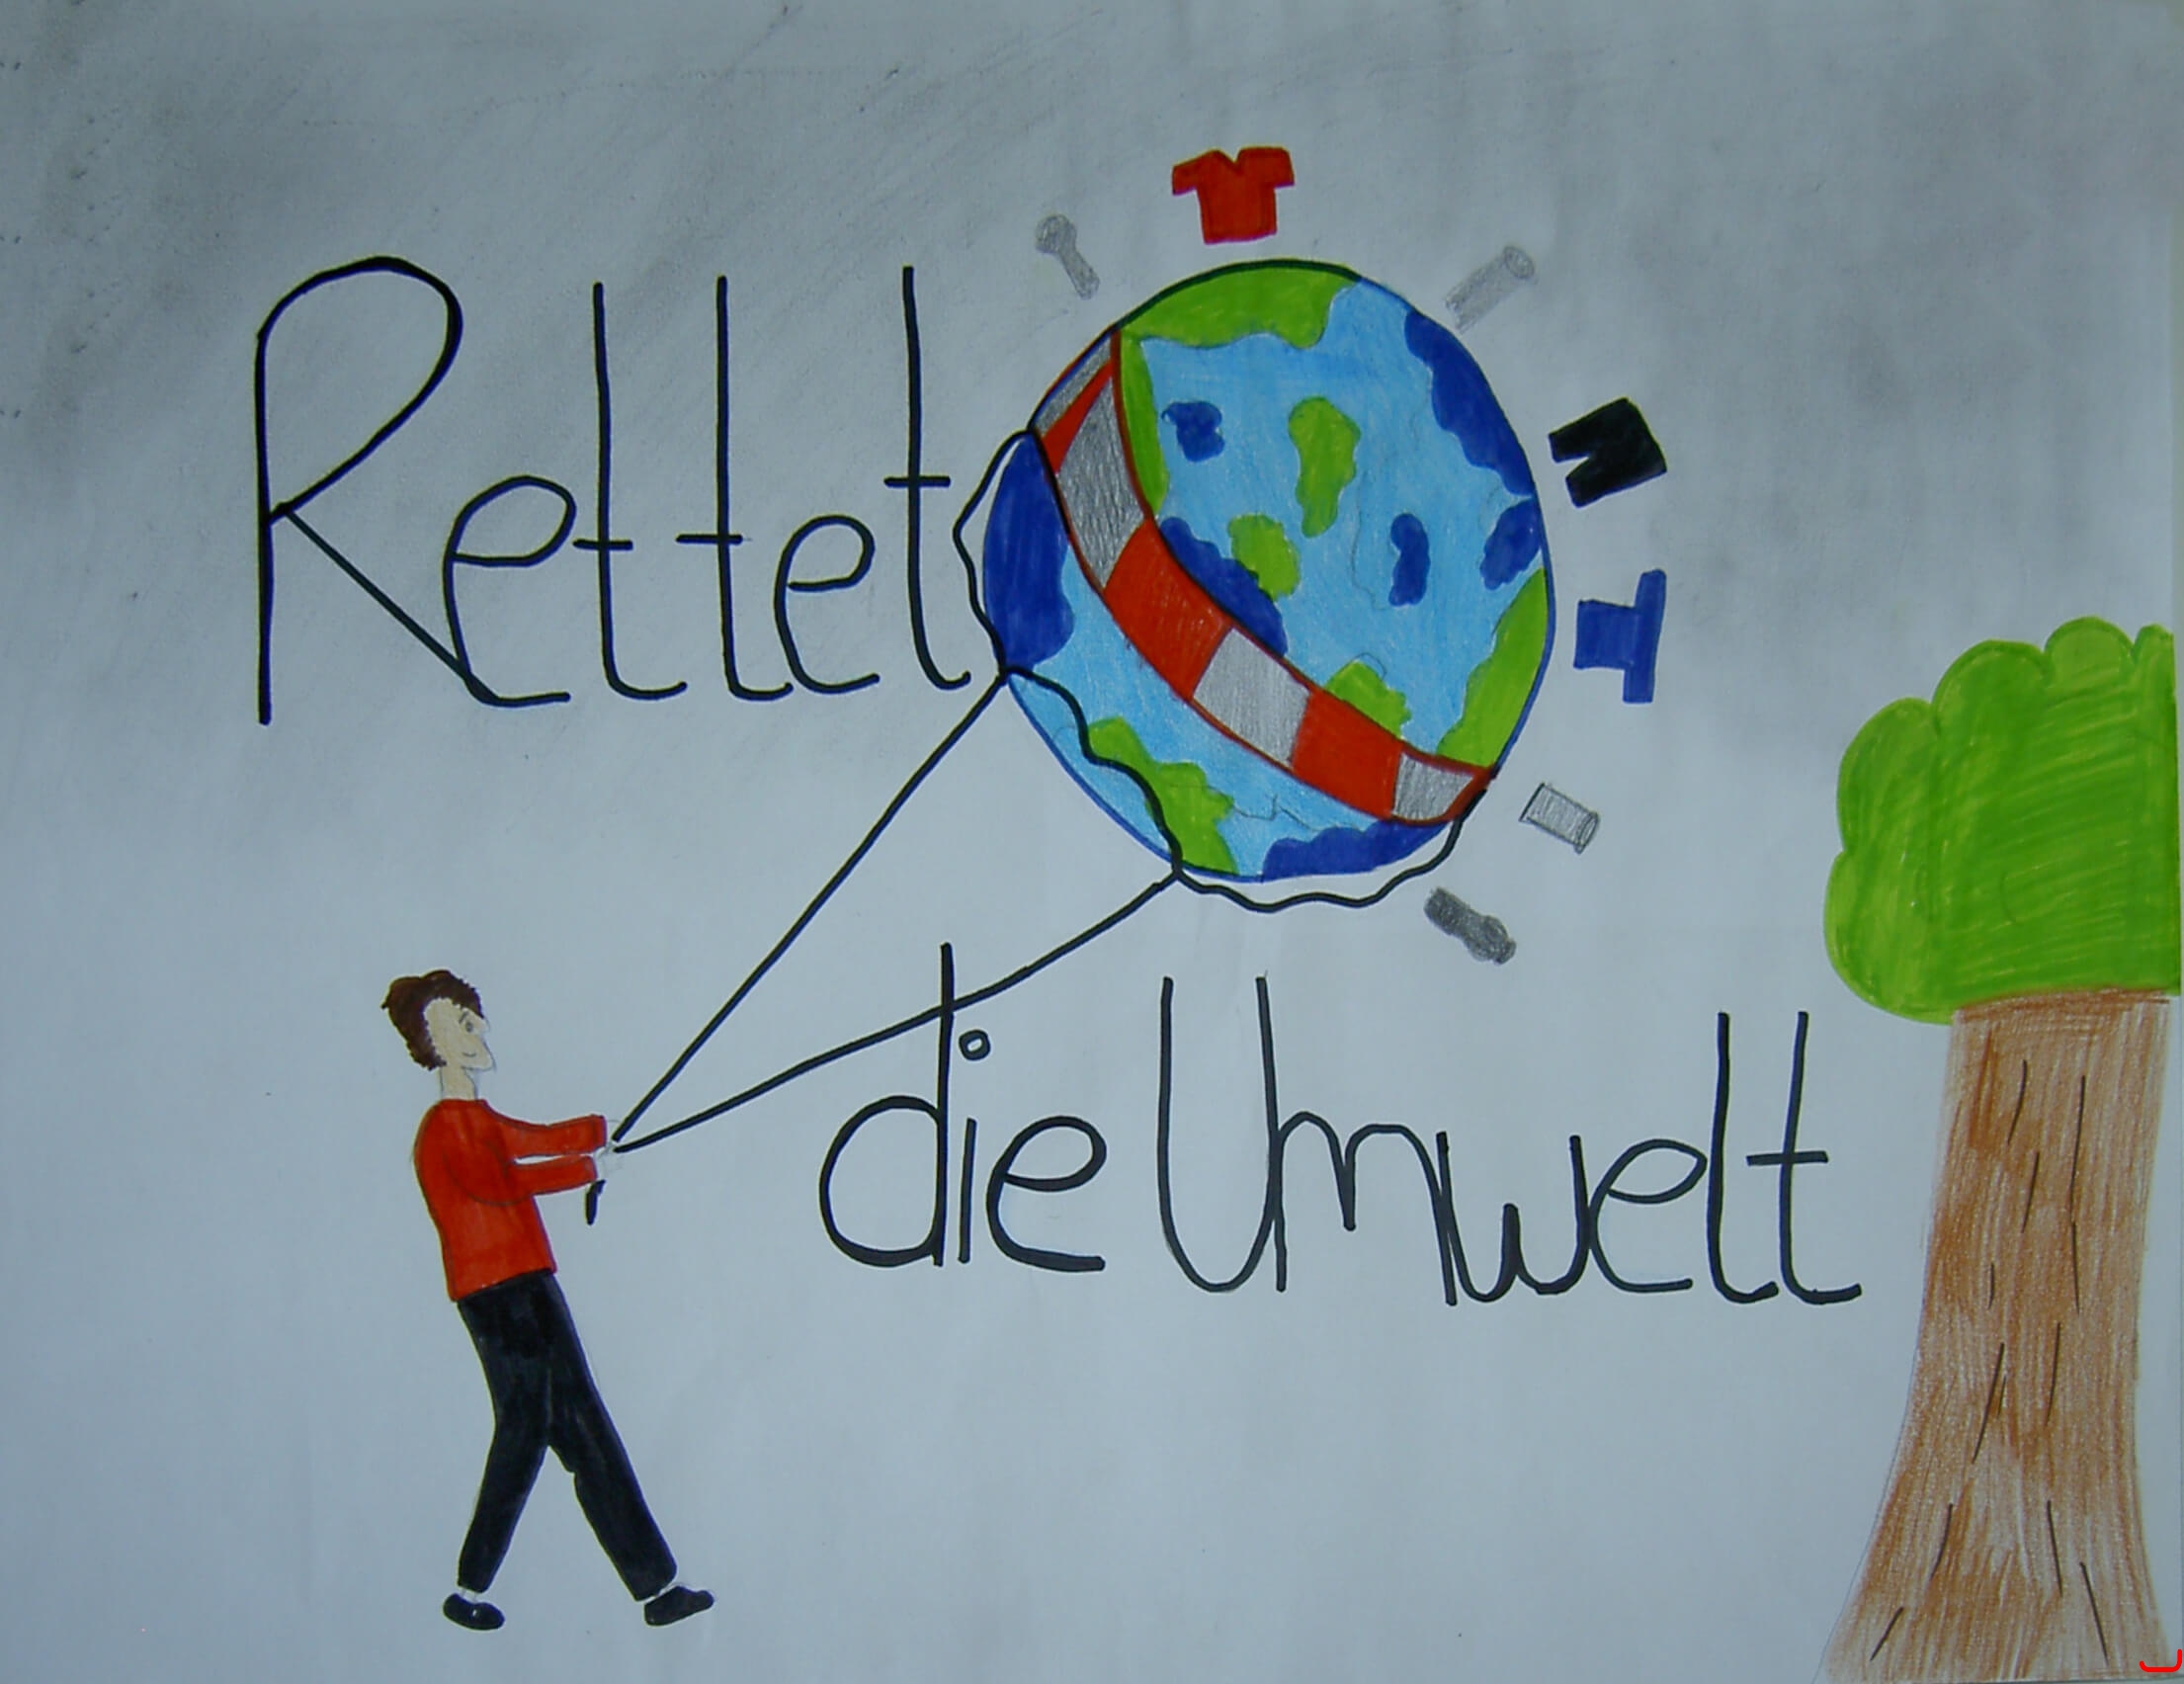 Rettet
die Umwelt